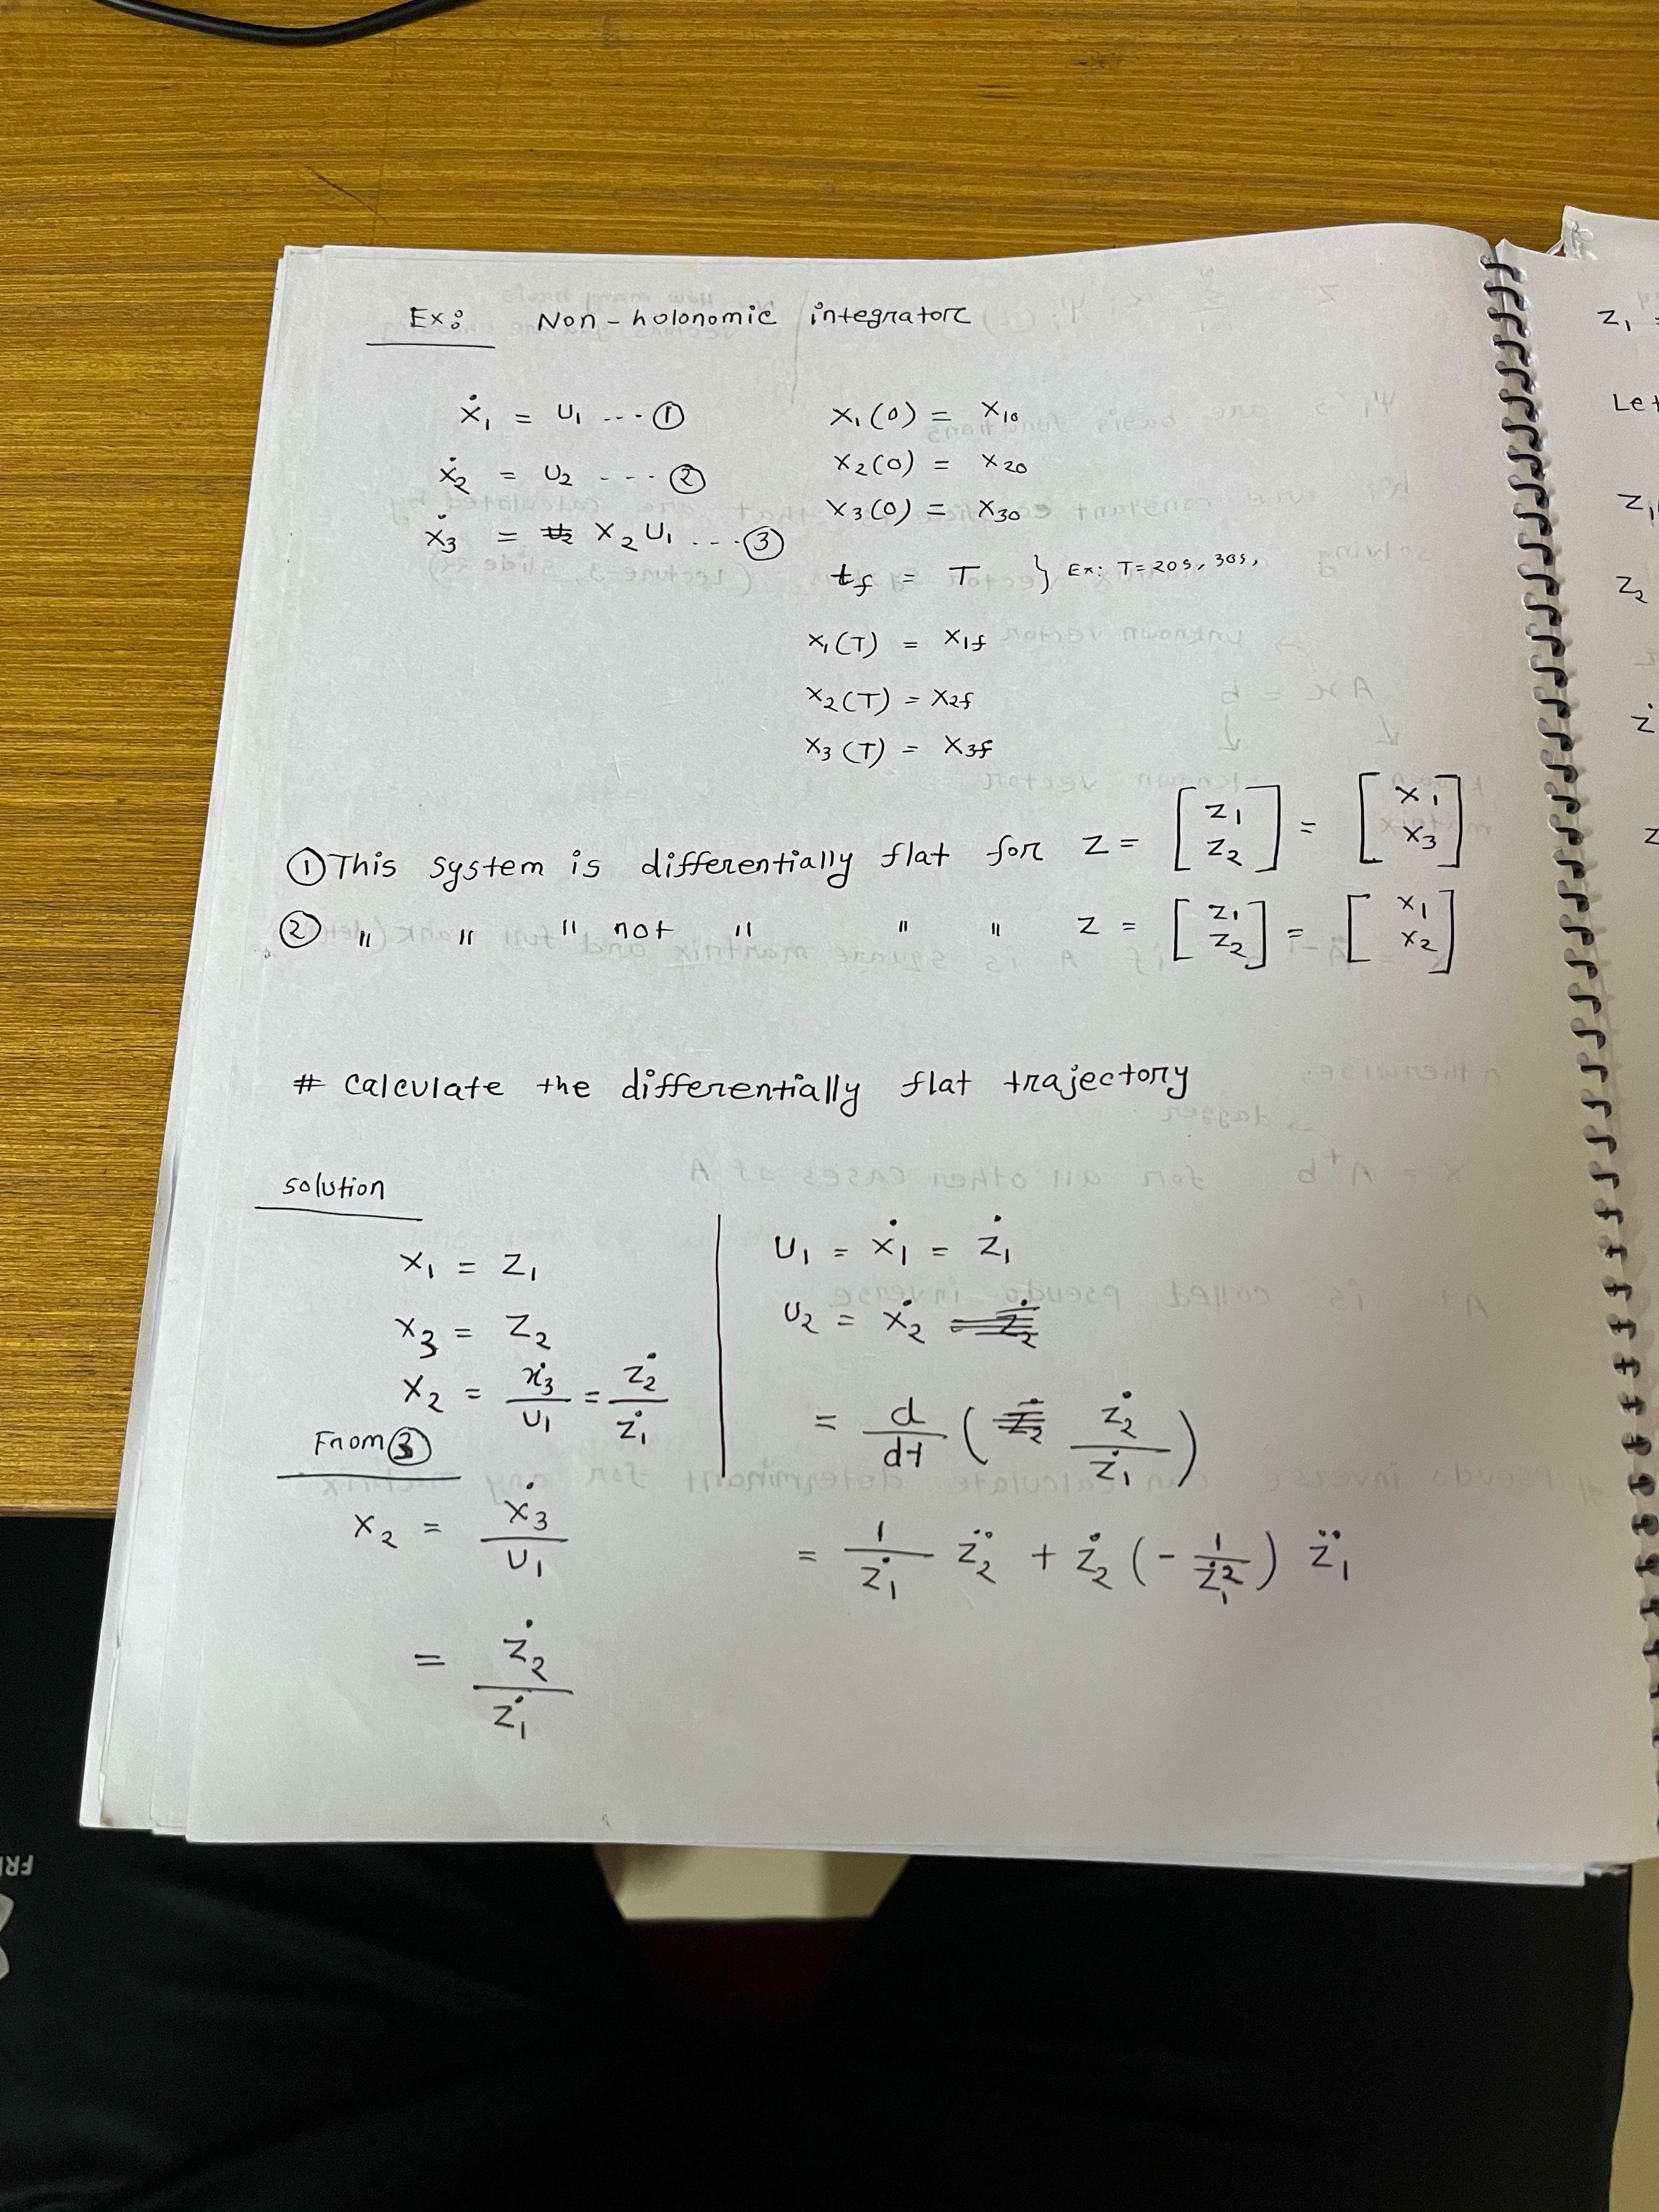 Ex: Non-holonomic integrator
ẋ₁ = u₁ --- ①
ẋ₂ = u₂ --- ②
ẋ₃ = x₂ u₁ --- ③
x₁(0) = x₁₀
x₂(0) = x₂₀
x₃(0) = x₃₀
t_f = T } Ex: T=20s, 30s,
x₁(T) = x₁f
x₂(T) = x₂f
x₃(T) = x₃f
① This system is differentially flat for z = [z₁ z₂] = [x₁ x₃]
② " " " not " " " z = [z₁ z₂] = [x₁ x₂]
# calculate the differentially flat trajectory
solution
x₁ = z₁
x₃ = z₂
x₂ = ẋ₃/u₁ = ż₂/ż₁
From ③
x₂ = ẋ₃/u₁
= ż₂/ż₁
u₁ = ẋ₁ = ż₁
u₂ = ẋ₂
= d/dt ( ż₂/ż₁ )
= 1/ż₁ z̈₂ + ż₂ (- 1/ż₁²) z̈₁
z₁
Let
z₁
z₂
ż
z